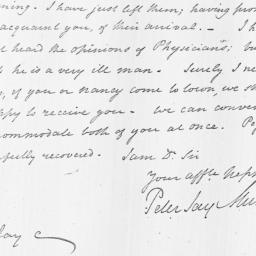 ning. I have just left them; having pro
acquaint you, of their arrival. — I h
t heard the opinions of Physicians; bu
k he is a very ill man. Surely I ne
, if you or Nancy come to town, we sh
ppy to receive you. — we can conven
ommodate both of you at once. Pe
fully recovered. I am Dr. Sir
Your affte. Neph
Peter Jay Mun
Jay